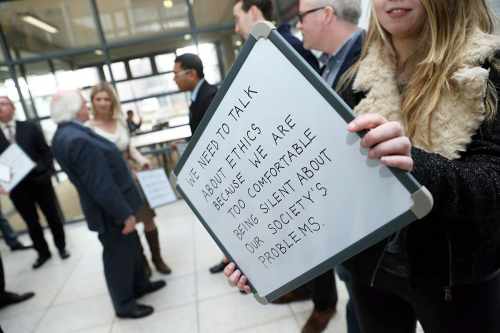 WE NEED TO TALK
ABOUT ETHICS
BECAUSE WE ARE
TOO COMFORTABLE
BEING SILENT ABOUT
OUR SOCIETY'S
PROBLEMS.